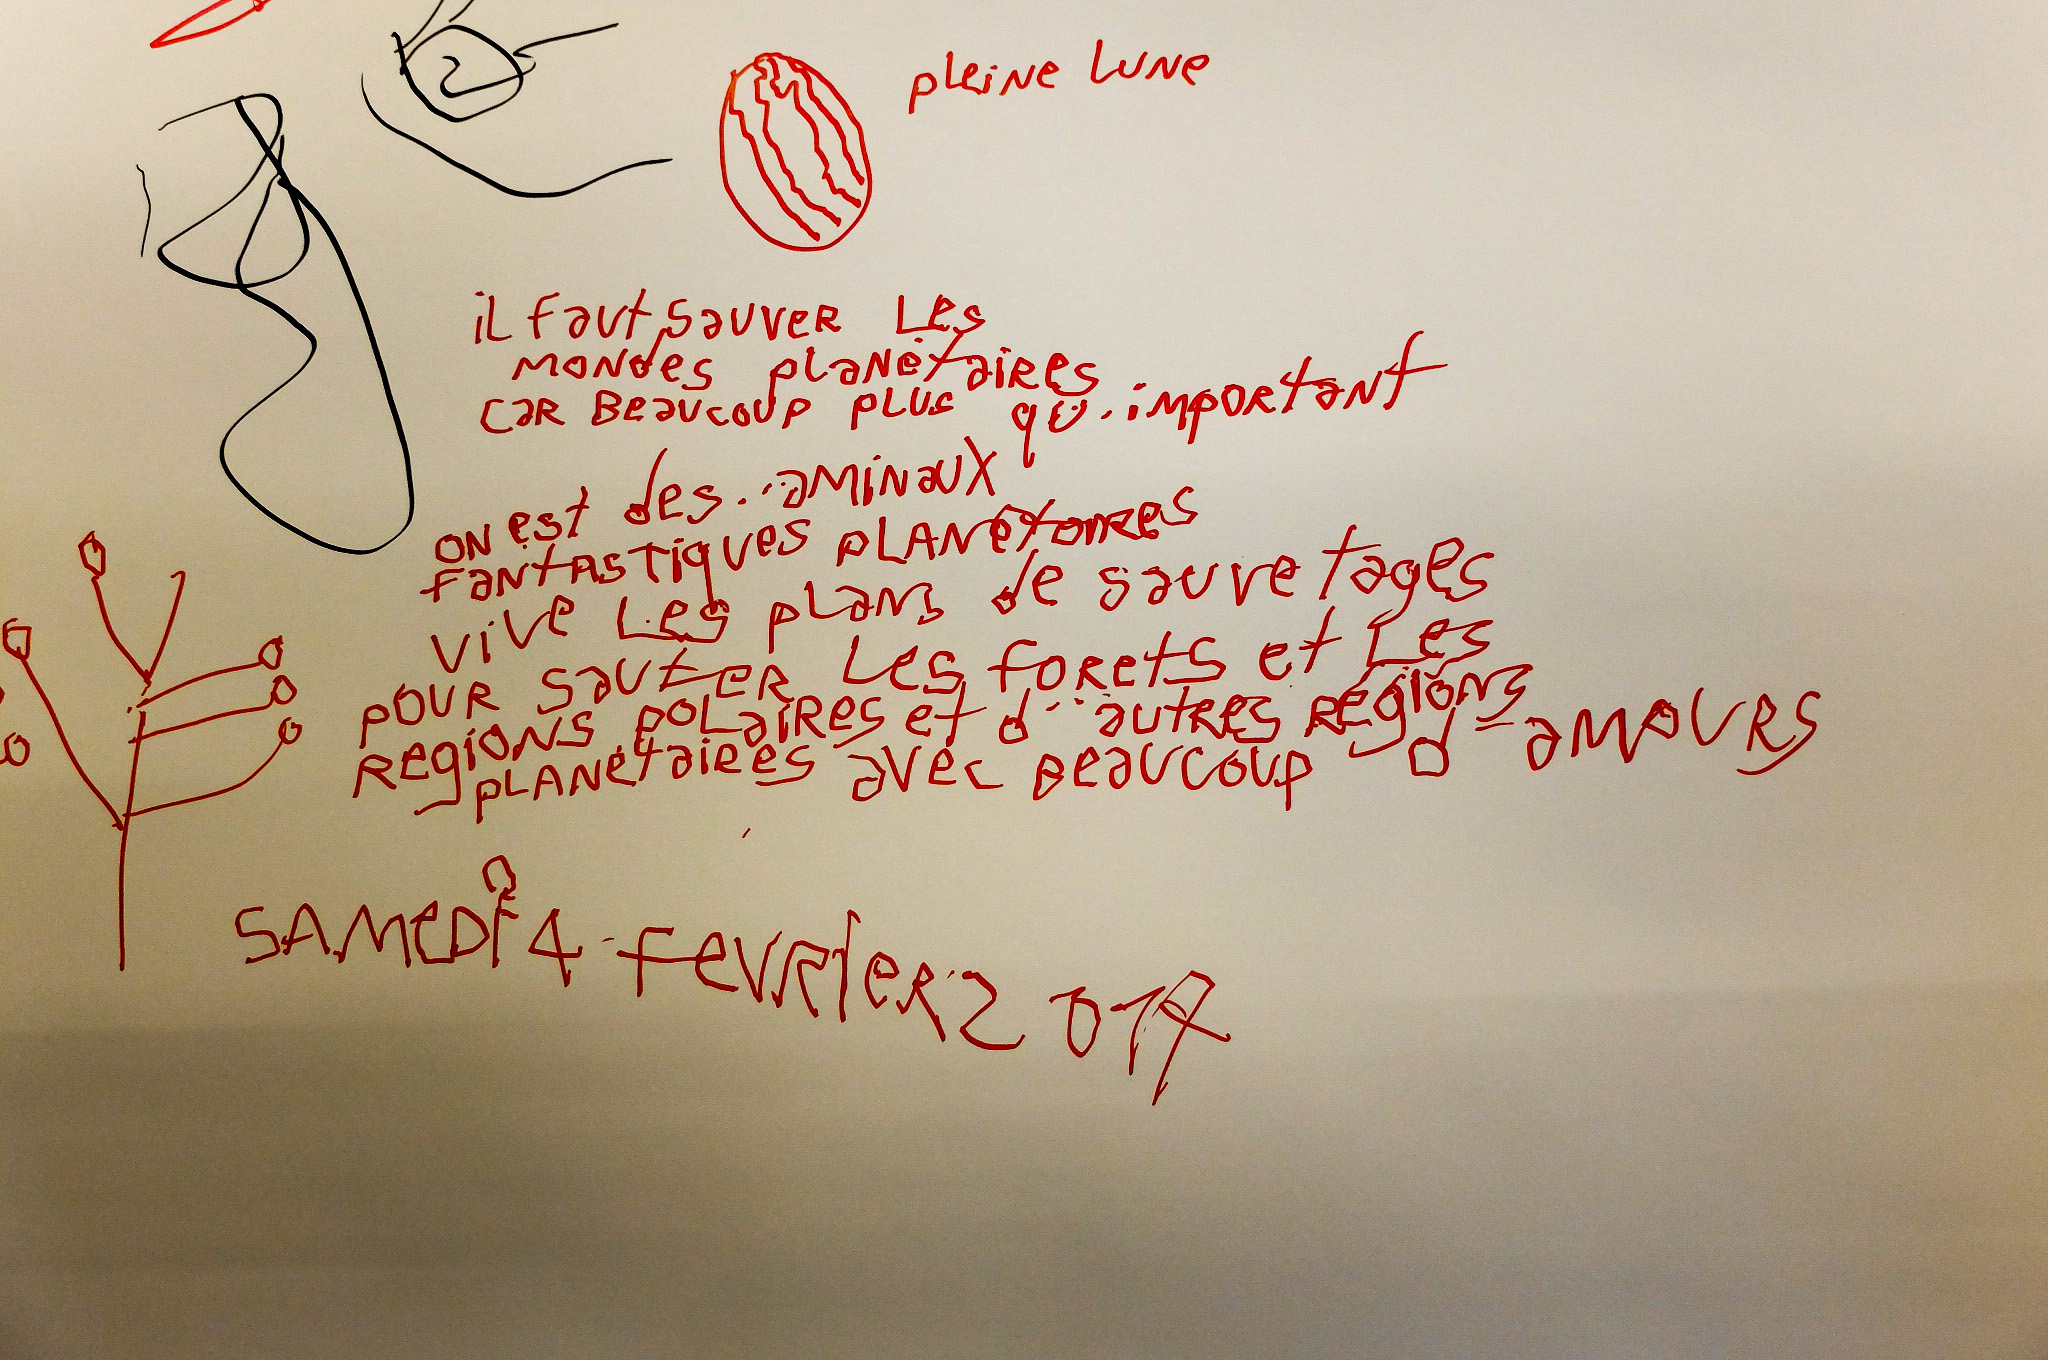 2
pleine lune
il faut sauver les
mondes planétaires
car beaucoup plus qu'important
on est des aminaux
fantastiques planétaires
vive les plans de sauvetages
pour sauter les forets et les
regions polaires et d'autres régions
planétaires avec beaucoup d'amours
SAMEDI 4 FEVRIER 2017